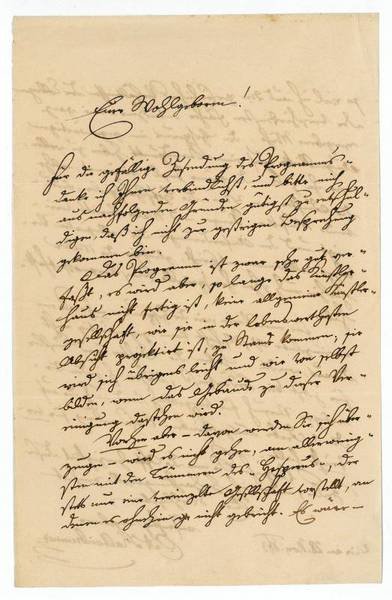 Euer Wohlgeboren!
Für die gefällige Zusendung des Programms
danke ich Ihnen verbindlichst, und bitte mich
aus nachfolgenden Gründen gütigst zu entschul-
digen, daß ich nicht zur gestrigen Besprechung
gekommen bin.
Das Programm ist zwar sehr gut ver-
faßt, es wird aber, so lange das Künstler-
haus nicht fertig ist, keine allgemeine Künstler-
gesellschaft, wie sie in der lobenswerthesten
Absicht projektirt ist, zu Stande kommen; sie
wird sich übrigens leicht und wie von selbst
bilden, wenn das Gebäude zu dieser Ver-
einigung dastehen wird.
Vorher aber – davon werden Sie sich über-
zeugen – wird es nicht gehen, am allerwenig-
sten mit den Trümmern des „Hesperus“, der
stets nur eine vereinzelte Gesellschaft vorstellt, an
denen es ohnehin ja nicht gebricht. Es wäre